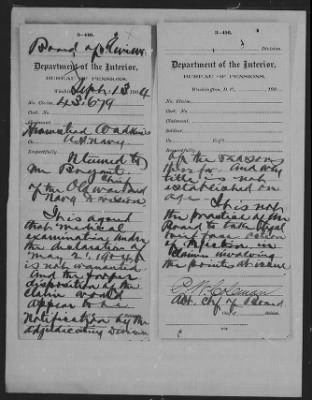 3-416.
Board of Review
Department of the Interior,
BUREAU OF PENSIONS,
Sept. 13, 1904
No. Claim, 43,679
Cert. No.
Claimant,
Watkins
U.S. Navy
Respectfully
returned to
Mr. Bryant,
Chief
of the Old War and
Navy Division
It is agreed
that medical
examination under
the declaration of
May 2, 1904,
is not warranted
and the proper
disposition of the
claim would
appear to be
notification by the
adjudicating Division
3-416.
Division.
Department of the Interior,
BUREAU OF PENSIONS,
Washington, D. C., 190
No. Claim,
Cert. No.
Claimant,
Soldier,
Co. Reg't
Respectfully
of the reasons
therefor. And why
title is not
established on
age.
It is not
the practice of the
Board to take legal
action
of rejection in
claims involving
the points at issue
Coleman
Act. Chf of Board
Division.